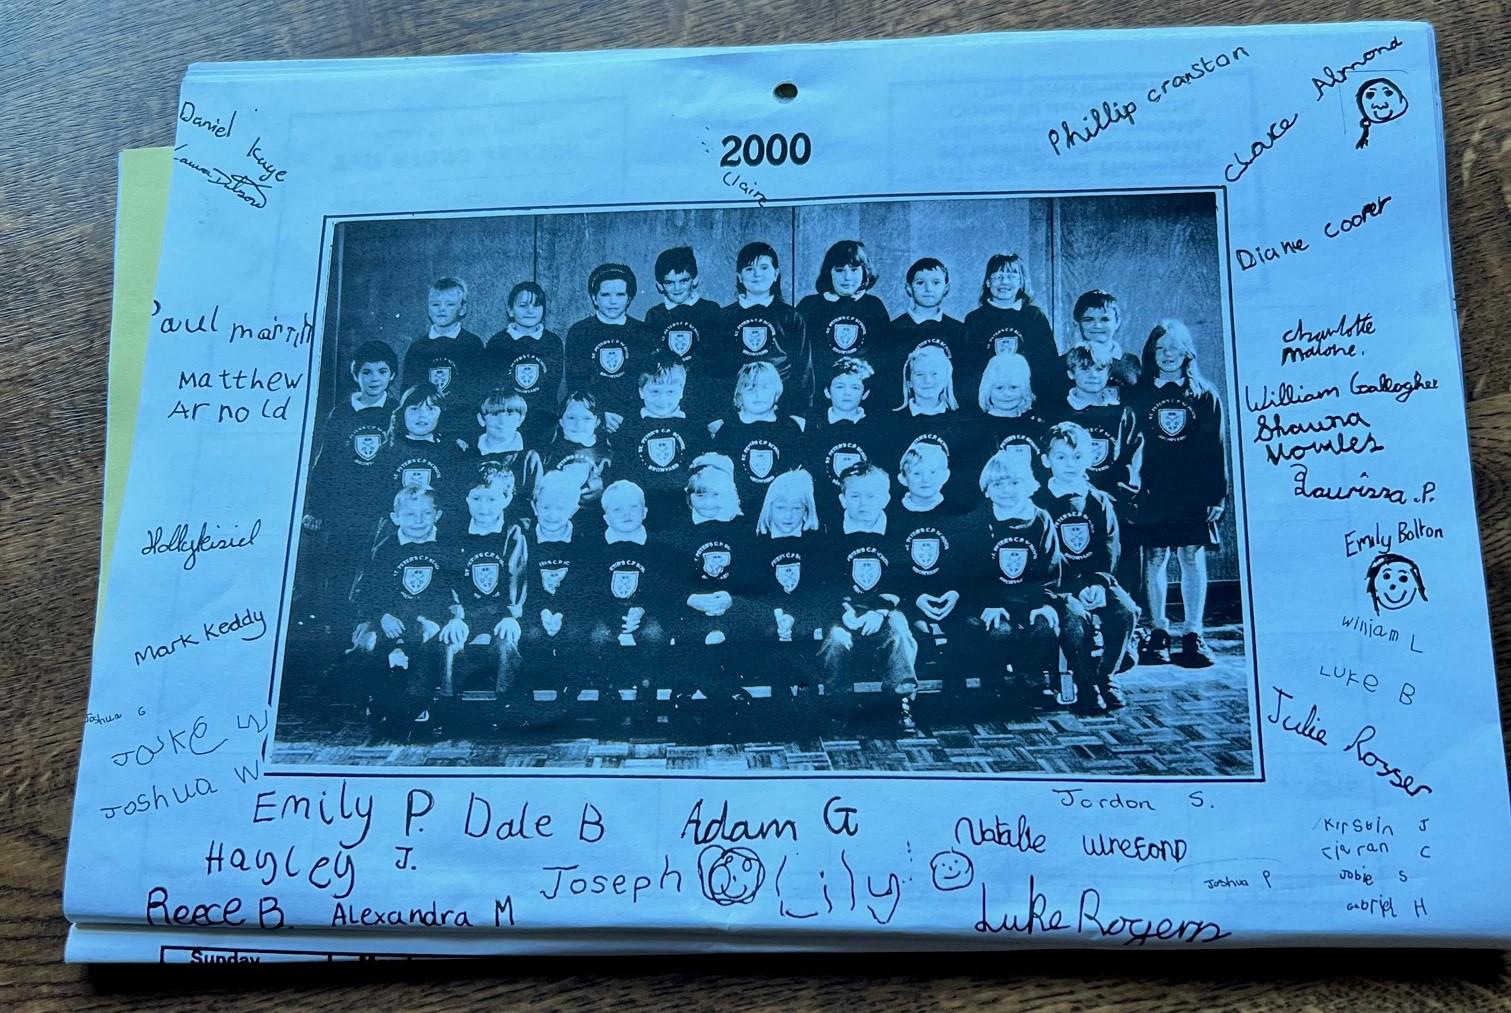 2000
Claire
Phillip Cranston
Almond
Daniel
Kaye
Laura
Diane Cooper
Paul
Charlotte
Malone.
Matthew
Arnold
William Gallagher
Shauna
Laurissa .P.
Emily Bolton
Holly
Mark Keddy
William L
Luke B
Joshua G
W
Joshua W
Julie Rosser
Emily P.
Dale B
Adam G
Jordon S.
Hayley J.
Joseph
Lily
Natalie
Joshua P
J
C
Jobie S
Gabriel H
Reece B.
Alexandra M
Luke Rogers
Sunday
ST. PETER'S C.P. SCHOOL
BROMYARD